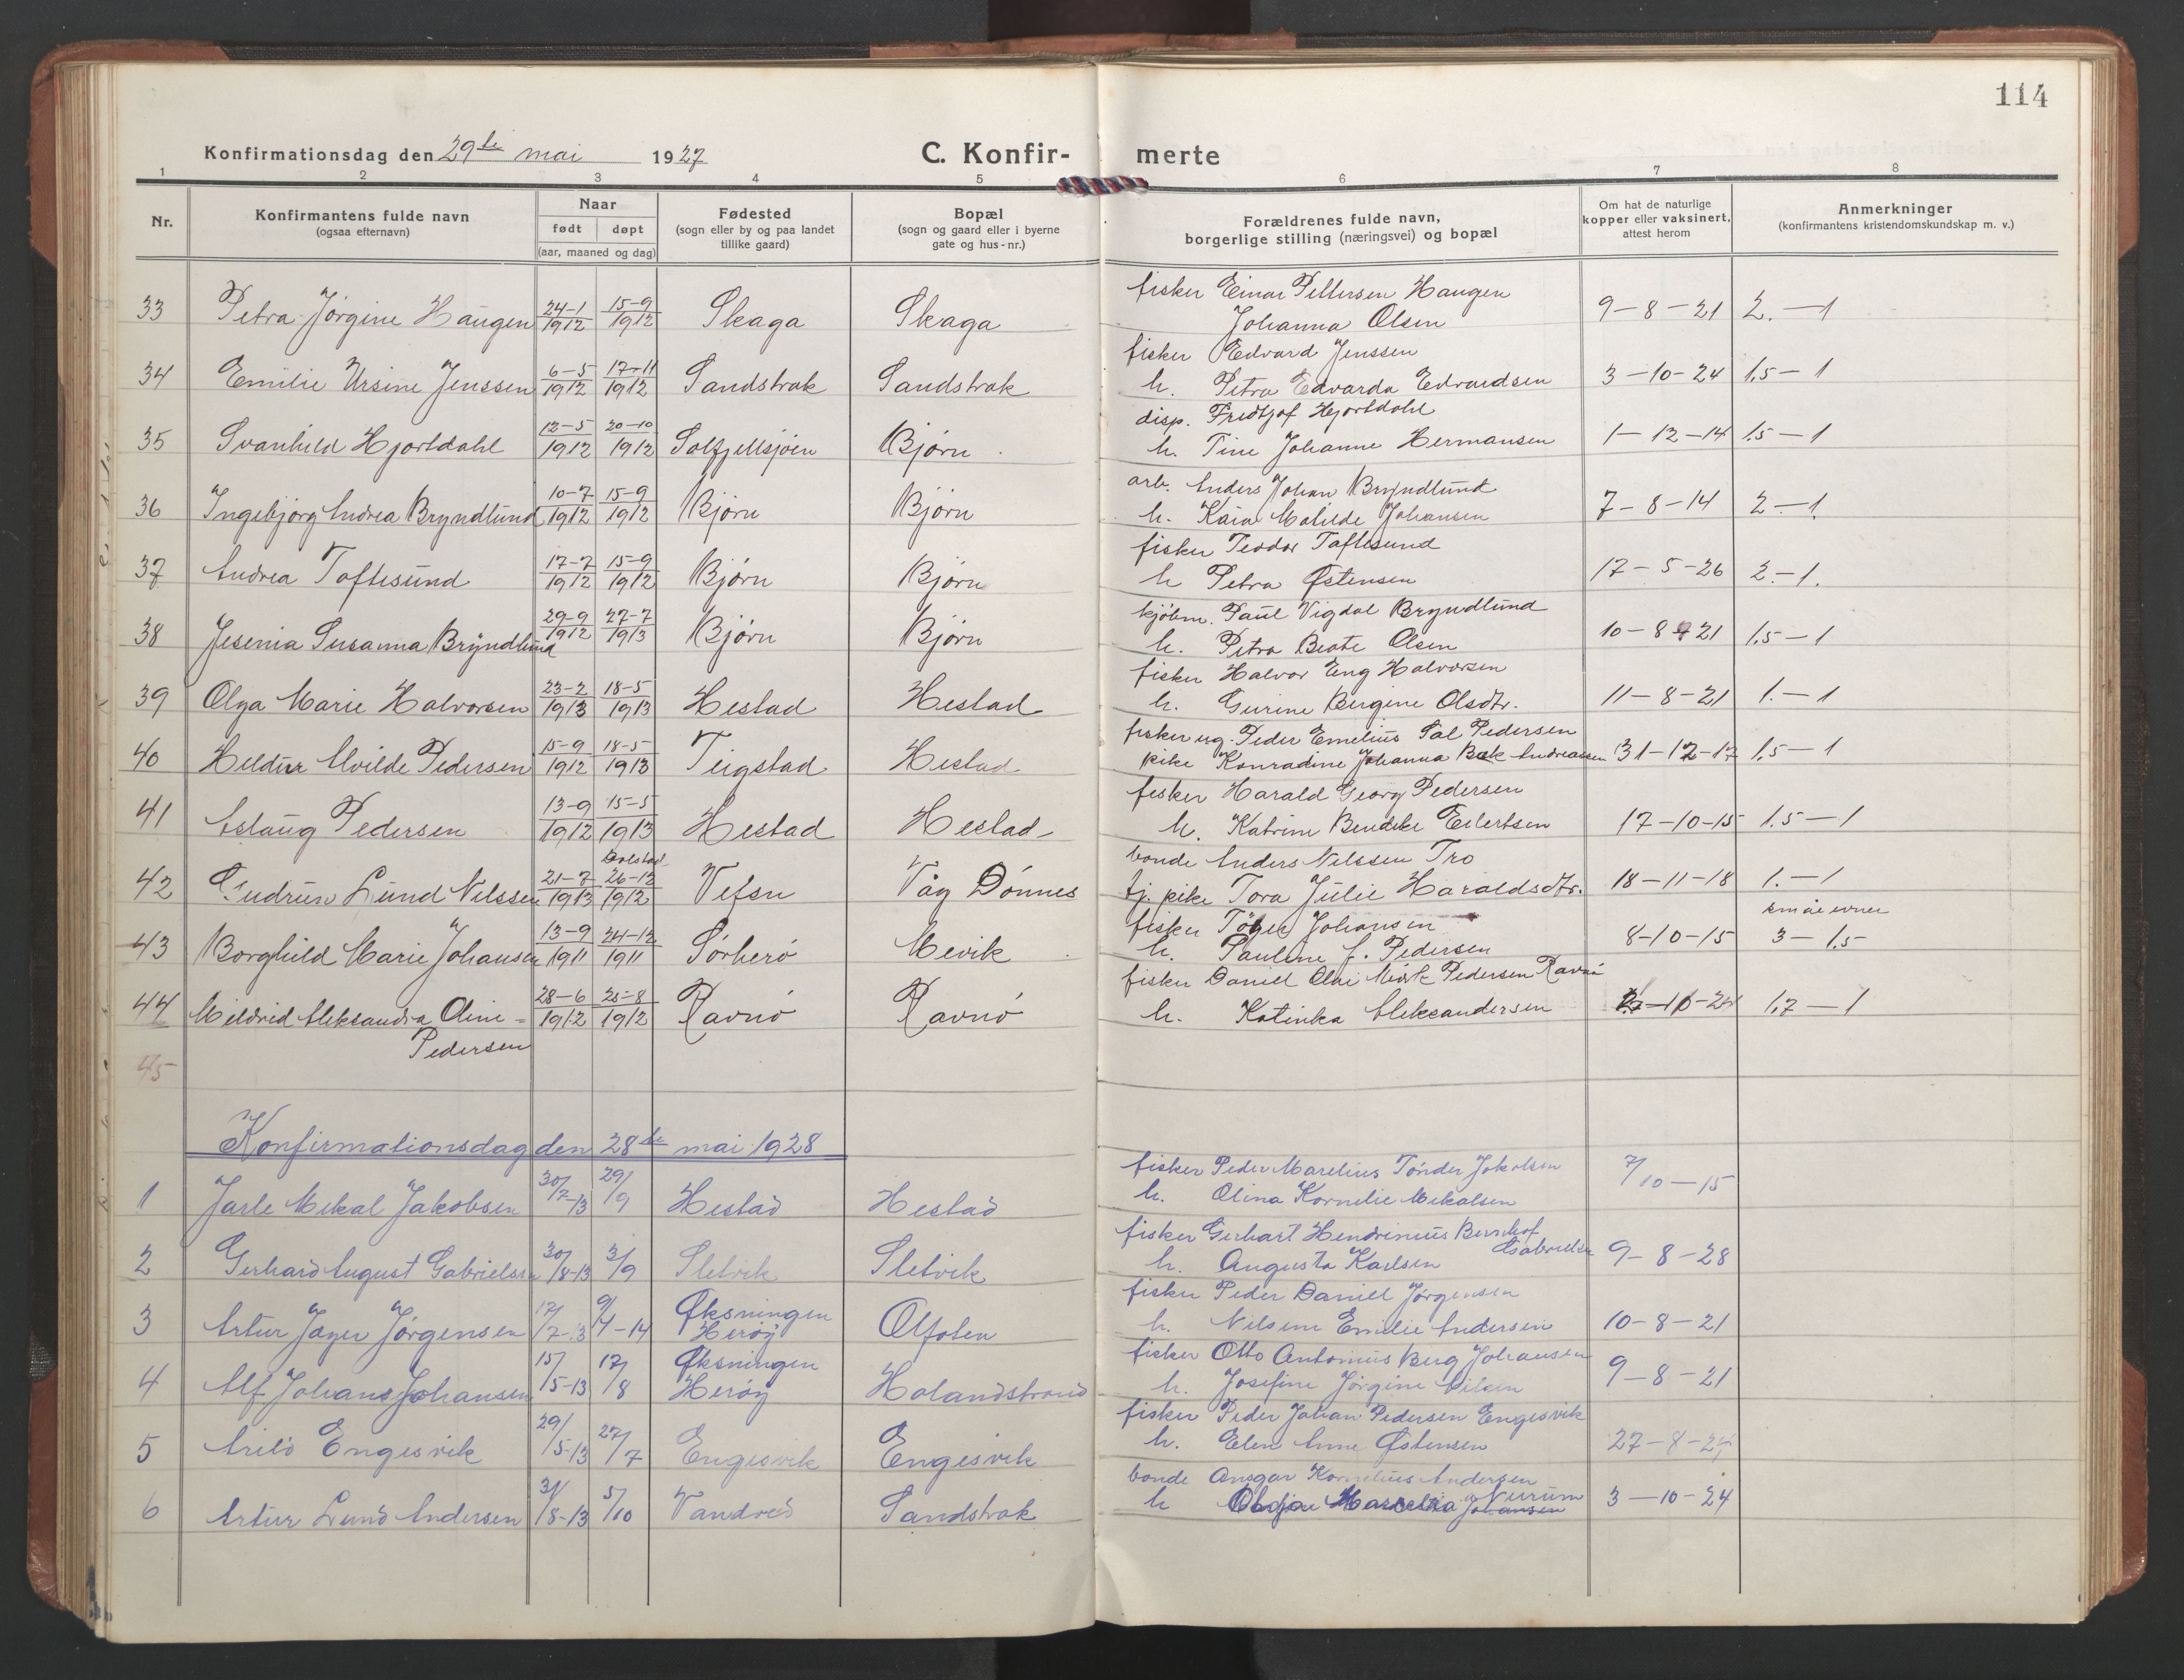 114
Konfirmationsdag den 29de mai 1927 C. Konfir- merte
1 2 3 4 5 6 7 8
Nr. Konfirmantens fulde navn (ogsaa efternavn) Naar født døpt (aar, maaned og dag) Fødested (sogn eller by og paa landet tillike gaard) Bopæl (sogn og gaard eller i byerne gate og hus-nr.) Forældrenes fulde navn, borgerlige stilling (næringsvei) og bopæl Om hat de naturlige kopper eller vaksinert, attest herom Anmerkninger (konfirmantens kristendomskundskap m. v.)
33 Petra Jørgine Haugen 24-1 1912 15-9 1912 Skaga Skaga fisker Einar Pettersen Haugen
Johanna Olsen 9-8-21 2.-1
34 Emilie Ursine Jenssen 6-5 1912 17-11 1912 Sandstrak Sandstrak fisker Edvard Jenssen
h. Petra Edvarda Edvardsen 3-10-24 1,5-1
35 Svanhild Hjortdahl 12-5 1912 20-10 1912 Solfjellsjøen Bjørn disp. Fredtjof Hjortdahl
h. Tine Johanne Hermansen 1-12-14 1,5-1
36 Ingebjørg Andrea Bryndlund 10-7 1912 15-9 1912 Bjørn Bjørn arb. Anders Johan Bryndlund
h. Kaia Matilde Johansen 7-8-14 2-1.
37 Andrea Toftesund 17-7 1912 15-9 1912 Bjørn Bjørn fisker Teodor Toftesund
h Petra Østensen 17-5-26 2.-1.
38 Jesenia Susanna Bryndlund 29-9 1912 27-7 1913 Bjørn Bjørn kjøbm. Paul Vigdal Bryndlund
h. Petra Beate Olsen 10-8-21 1,5-1
39 Olga Marie Halvorsen 23-2 1913 18-5 1913 Hestad Hestad fisker Halvor Eng Halvorsen
h. Gurine Bergine Olsdtr. 11-8-21 1.-1
40 Hildur Alvilde Pedersen 15-9 1912 18-5 1913 Teigstad Hestad fisker ug. Peder Emelius Sal Pedersen
pike Konradine Johanna Bak Andreassen 31-12-17 1,5-1
41 Aslaug Pedersen 13-9 1912 15-5 1913 Hestad Hestad fisker Harald Georg Pedersen
h. Katrine Bendikte Eilertsen 17-10-15 1.5-1
42 Gudrun Lund Nilssen 21-7 1913 Dolstad 26-12 1912 Vefsn Våg Dønnes bonde Anders Nilssen Tro
tj. pike Tora Julie Haraldsdtr. 18-11-18 1.-1
43 Borghild Marie Johansen 13-9 1911 24-12 1911 Sørherø Mevik fisker Johansen
h. Pauline J. Pedersen 8-10-15 små evner 3-1,5
44 Mildrid Aleksandra Oline - Pedersen 28-6 1912 25-8 1912 Ravnø Ravnø fisker Daniel Olai Mørk Pedersen Ravnø
h. Katinka Aleksandersen 1,7-1
45
Konfirmationsdag den 28de mai 1928
1 Jarle Mekal Jakobsen 30/7-13 29/9 Hestad Hestad fisker Peder Marelius Tønder Jakobsen
h. Olina Kornelie Mikalsen 7/10-15
2 Gerhard August Gabrielsen 30/8-13 3/9 Sletvik Sletvik fisker Gerhart Hendrinius Gabrielsen
h. Augusta Karlsen 9-8-28
3 Artur Jørgensen 17/7-13 9/4-14 Øksningen Herøy Olfoten fisker Peder Daniel Jørgensen
h. Nilsine Emilie Andersen 10-8-21
4 Alf Johans Johansen 15/5-13 17/8 Øksningen Herøy Holandstrand fisker Otto Antonius Berg Johansen
h. Josefine Jørgine Nilsen 9-8-21
5 Arild Engesvik 29/5-13 27/7 Engesvik Engesvik fisker Peder Johan Pedersen Engesvik
h. Elen Anne Østensen 27-8-24
6 Artur Lund Andersen 31/8-13 5/10 Vandved Sandstrak bonde Ansgar Kornelius Andersen
h 3-10-24